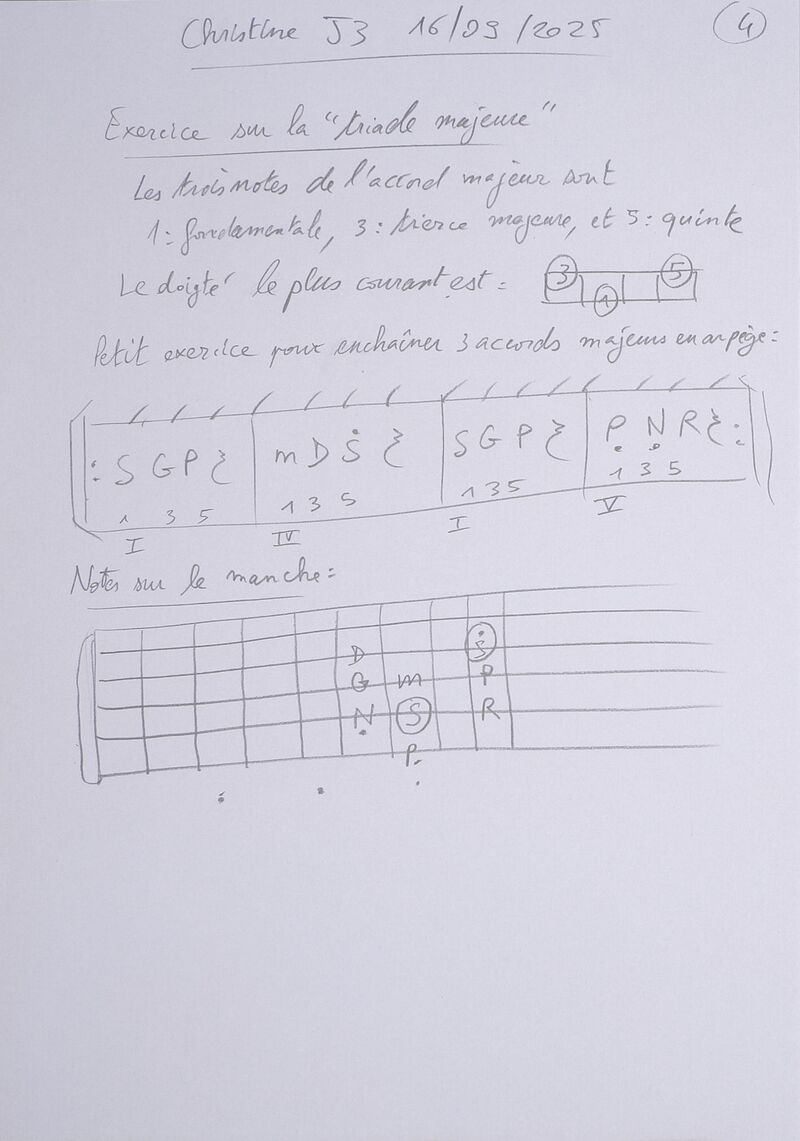 Christine J3 16/09/2025
4
Exercice sur la "triade majeure"
Les trois notes de l'accord majeur sont
1: fondamentale, 3: tierce majeure, et 5: quinte
Le doigté le plus courant est:
3 5
1
Petit exercice pour enchaîner 3 accords majeurs en arpège:
: S G P m D Ṡ S G P P̣ Ṇ R :
1 3 5 1 3 5 1 3 5 1 3 5
I IV I V
Notes sur le manche:
Ṡ
D
G m P
Ṇ S R
P̣